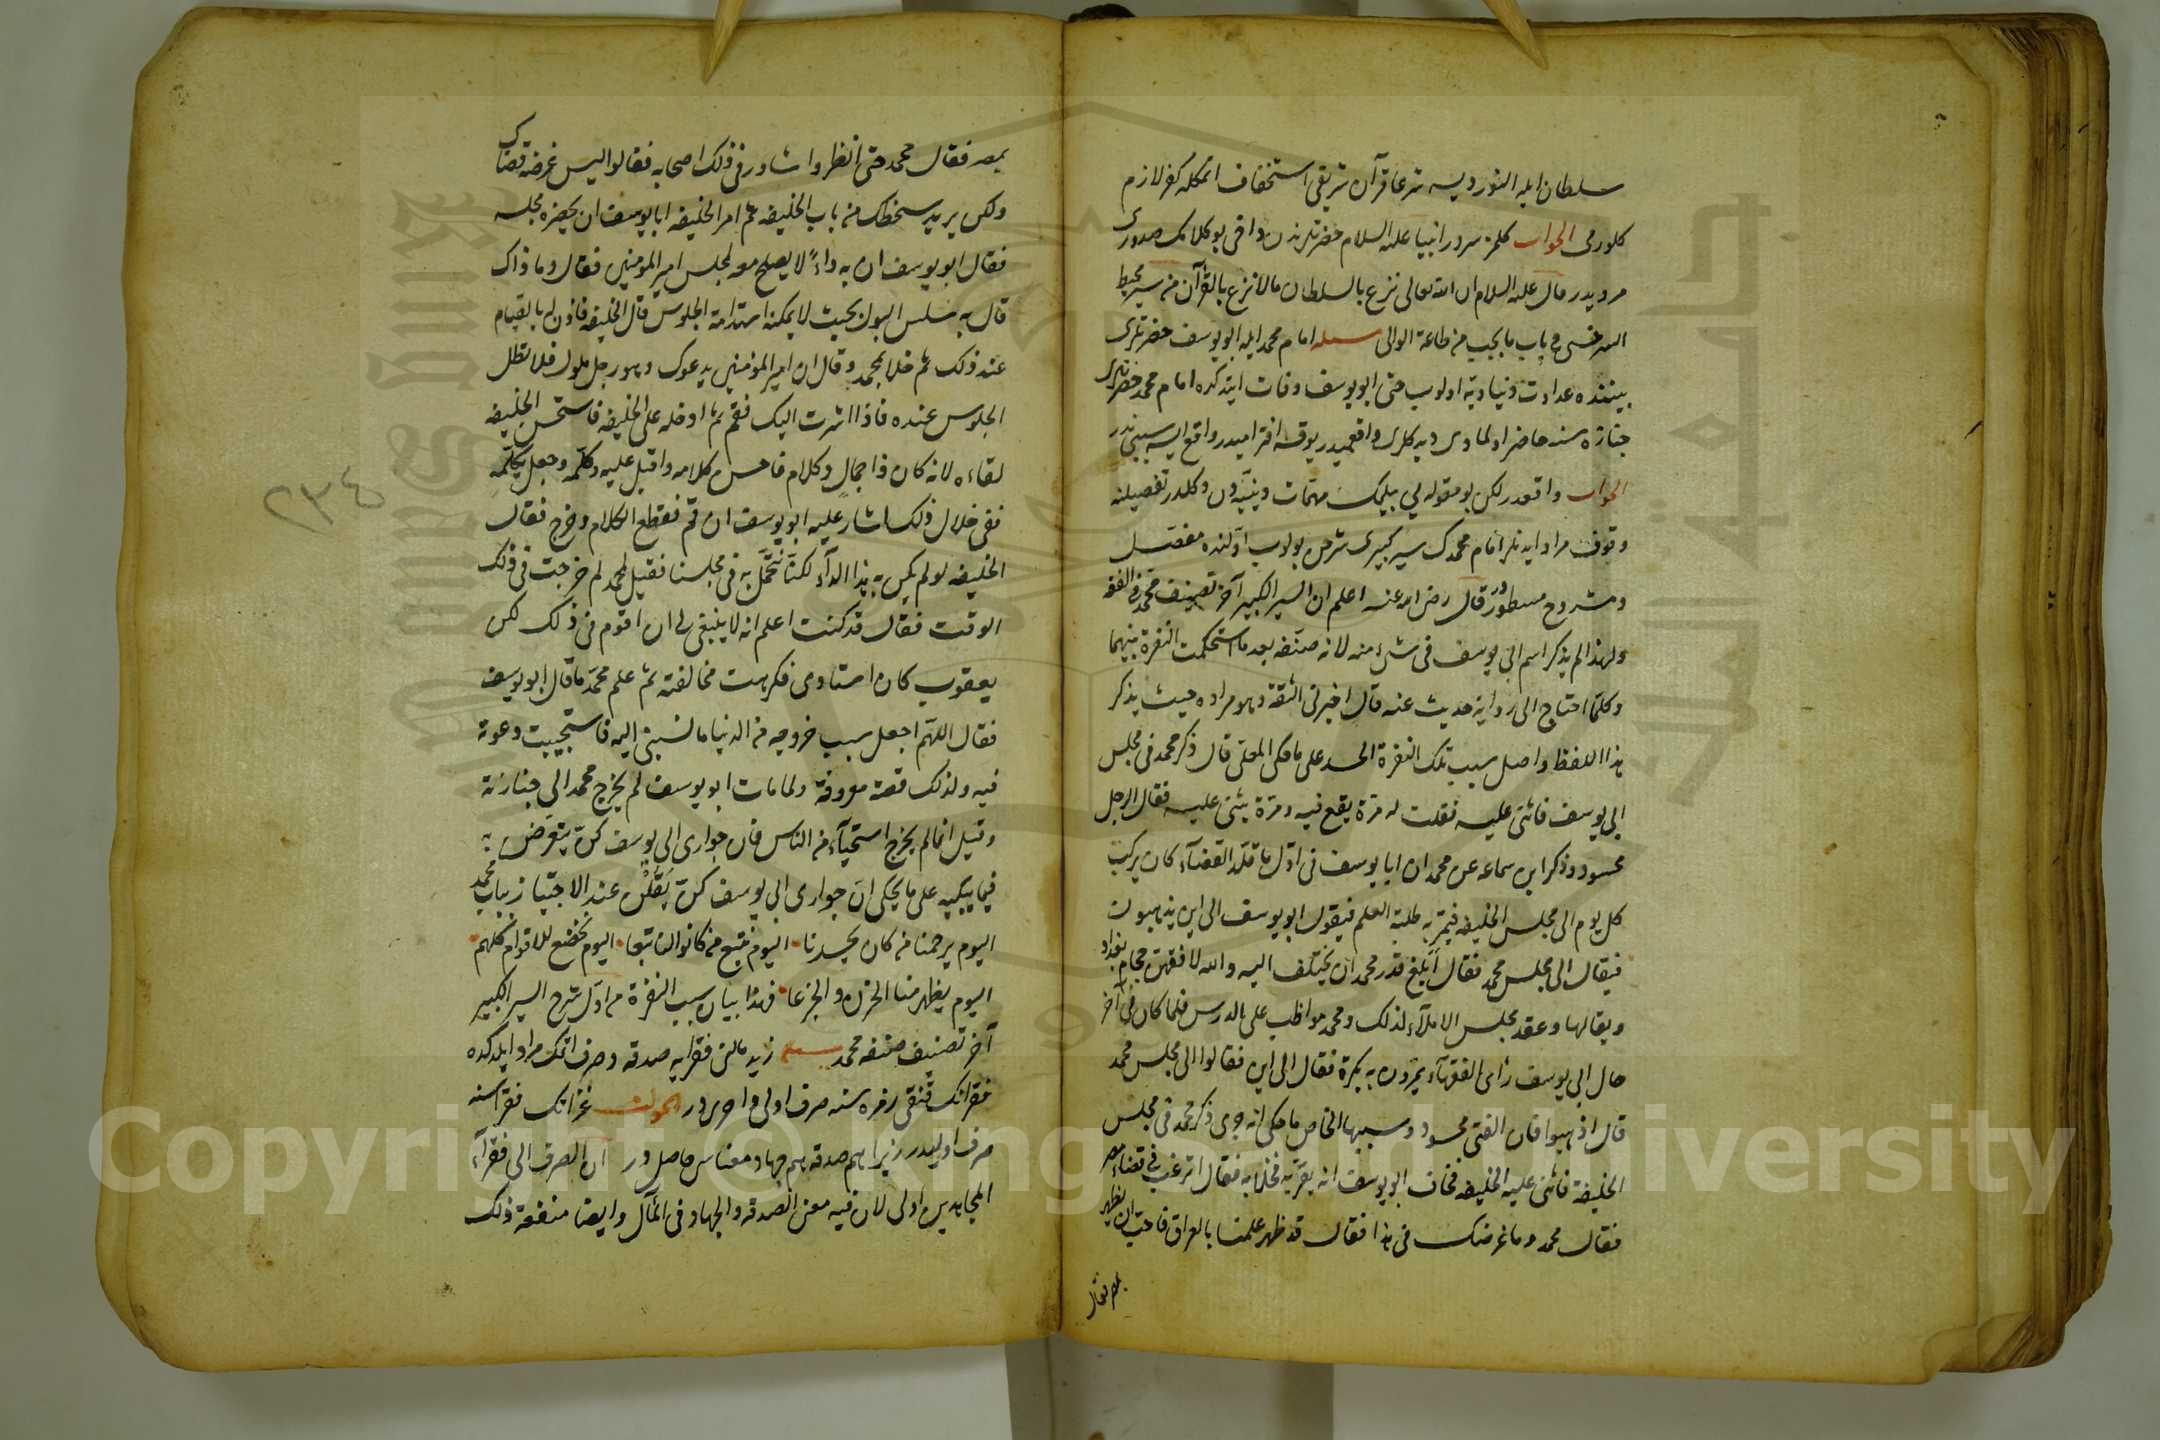 سلطان ايله اولنور ديسه شرعا قرآن شريفى استخفاف اتمكله كفر لازم
كلورمى الجواب كلمز سرور انبيا عليه السلام حضرتلرندن واقى بو كلامك صدورى
مرويدر قال عليه السلام ان الله تعالى نزع بالسلطان مالا نزع بالقرآن من سير محيط
السرخسى فى باب ما يجب من طاعة الوالى مسئله امام محمد ايله ابو يوسف حضرتلرى
بيننده عداوت دنياويه اولوب حتى ابو يوسف وفات ايتدكده امام محمد حضرتلرى
جنازه سنه حاضر اولمادى ديدكلرى واقعميدر يوقسه افترا ميدر واقع ايسه سببى ندر
الجواب واقعدر لكن بو مقوله يى بيلمك مهمات دينيه دن دكلدر تفصيلنه
وقوف مراد ايدنلر امام محمدك سير كبيرى شرحن بولوب اولنده مفصل
ومشروح مسطوردر قال رضى الله عنه اعلم ان السير الكبير آخر تصنيف محمد فى الفقه
ولهذا لم يذكر اسم ابى يوسف فى شئ منه لانه صنفه بعد ما استحكمت النفرة بينهما
وكلما احتاج الى رواية حديث عنه قال اخبرنى الثقة وهو مراده حيث يذكر
هذا اللفظ واصل سبب تلك النفرة الحسد على ما حكى المعلى قال ذكر محمد فى مجلس
ابى يوسف فاثنى عليه فقلت له مرة يقع فيه ومرة يثنى عليه فقال الرجل
محسود وذكر ابن سماعه عن محمد ان ابا يوسف فى اول ما قلد القضاء كان يركب
كل يوم الى مجلس الخليفه فيمر به طلبة العلم فيقول ابو يوسف الى اين يذهبون
فيقال الى مجلس محمد فقال أبلغ قدر محمد ان يختلف اليه والله لافقهن حجام بغداد
وبقالها وعقد مجلس الاملاء لذلك ومحمد مواظب على الدرس فلما كان فى آخر
حال ابى يوسف رأى الفقهاء يمرون به بكرة فقال الى اين فقالوا الى مجلس محمد
قال اذهبوا فان الفتى محسود وسببها الخاص ما حكى انه جرى ذكر محمد فى مجلس
الخليفة فاثنى عليه الخليفه فخاف ابو يوسف انه يقربه فخلا به فقال اترغب فى قضاء مصر
فقال محمد وما غرضك فى هذا فقال قد ظهر علمنا بالعراق فاحب ان يظهر
بمصر فقال
بمصر فقال محمد حتى انظر واشاور فى ذلك اصحابه فقالوا ليس غرضه قضاك
ولكن يريد سخطك من باب الخليفه ثم امر الخليفه ابا يوسف ان يحضره مجلسه
فقال ابو يوسف ان به داءً لا يصلح معه لمجلس امير المؤمنين فقال وما ذاك
قال به سلس البول بحيث لا يمكنه استدامة الجلوس قال الخليفه فاذن له بالقيام
عند ذلك ثم خلا بمحمد وقال ان امير المؤمنين يدعوك وهو رجل ملول فلا تطل
الجلوس عنده فاذا اشرت اليك فقم ثم ادخله على الخليفه فاستحسن الخليفه
لقاءه لانه كان ذا جمال وكلام فاحسن كلامه واقبل عليه وكلمه وجعل يكلمه
ففى خلال ذلك اشار عليه ابو يوسف ان قم فقطع الكلام وخرج فقال
الخليفه لو لم يكن به هذا الداء لكنا نتجمل به فى مجلسنا فقيل لمحمد لم خرجت فى ذلك
الوقت فقال قد كنت اعلم انه لا ينبغى لى ان اقوم فى ذلك لكن
يعقوب كان استاذى فكرهت مخالفته ثم علم محمد ما قال ابو يوسف
فقال اللهم اجعل سبب خروجه من الدنيا ما نسبنى اليه فاستجيبت دعوته
فيه ولذلك قصة معروفة ولما مات ابو يوسف لم يخرج محمد الى جنازته
وقيل انما لم يخرج استحياء من الناس فان جوارى ابى يوسف كن يتعرضن
فيما يبكيه على ما يحكى ان جوارى ابى يوسف كن يقلن عند الاجتياز بباب محمد
اليوم يرحمنا من كان يحسدنا اليوم نتبع من كانوا لنا تبعا اليوم نخضع للاقوام كلهم
اليوم يظهر منا الحزن والجزعا فهذا بيان سبب النفرة من اول شرح السير الكبير
آخر تصنيف صنفه محمد مسئله زيد مالنى فقرايه صدقه وصرف اتمك مراد ايلدكده
فقرانك قنقى زمره سنه صرف اولى واحرى در الجواب غزاتك فقراسنه
صرف اوليدر زيرا هم صدقه هم جهاد معناسى حاصل در ان الصرف الى فقراء
المجاهدين اولى لان فيه معنى الصدقه والجهاد فى المآل وايضا منفعة ذلك
٢٣٤
Copyright © King Saud University